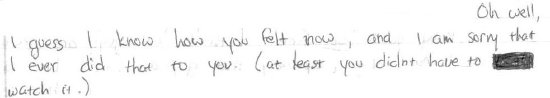 Oh well,
I guess I know how you felt now, and I am sorry that
I ever did that to you. (at least you didnt have to
watch it.)